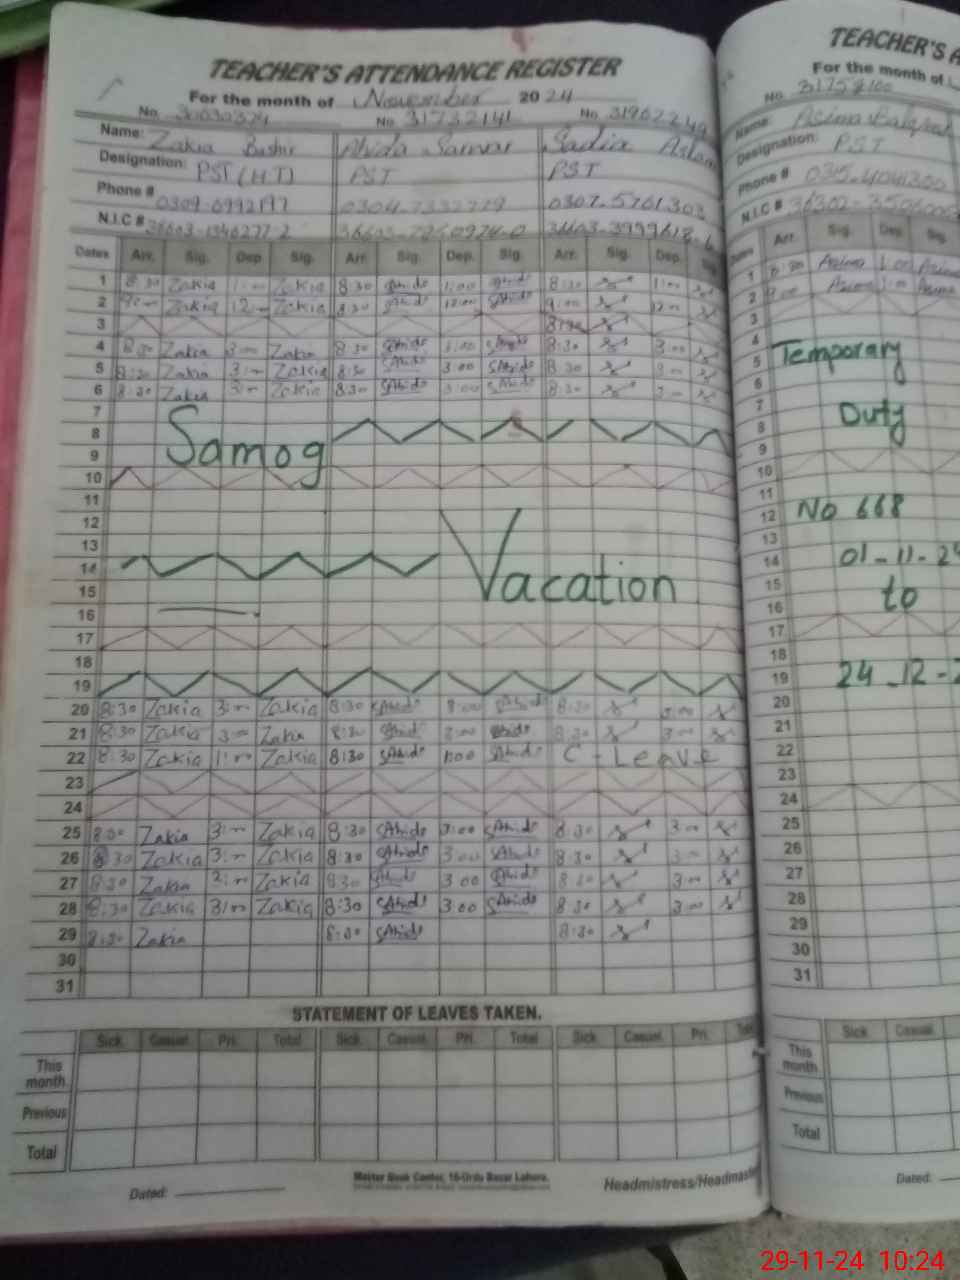 TEACHER'S ATTENDANCE REGISTER
For the month of November 2024
No. No. 31732141 No. 31962249
Name: Zakia Bashir Abida Samar Sadia Aslam
Designation: PST (HT) PST PST
Phone # 0309-0992197 0304-7332779 0307-5761303
N.I.C #
Dates Arr. Sig. Dep. Sig. Arr. Sig. Dep. Sig. Arr. Sig. Dep. Sig.
1 8:30 Zakia 1:00 Zakia 8:30 SAbida 1:00 SAbida 8:30 1:00
2 9:00 Zakia 12:00 Zakia 8:30 SAbida 12:00 SAbida 9:00 12:00
3 8:30
4 8:30 Zakia 3:00 Zakia 8:30 SAbida 3:00 SAbida 8:30 3:00
5 8:30 Zakia 3:00 Zakia 8:30 SAbida 3:00 SAbida 8:30 3:00
6 8:30 Zakia 3:00 Zakia 8:30 SAbida 3:00 SAbida 8:30 3:00
7
8
Samog
9
10
11
12
13
14
Vacation
15
16
17
18
19
20 8:30 Zakia 3:00 Zakia 8:30 SAbida 3:00 SAbida 8:30 3:00
21 8:30 Zakia 3:00 Zakia 8:30 SAbida 3:00 SAbida 8:30 3:00
22 8:30 Zakia 1:00 Zakia 8:30 SAbida 1:00 SAbida C-Leave
23
24
25 8:30 Zakia 3:00 Zakia 8:30 SAbida 3:00 SAbida 8:30 3:00
26 8:30 Zakia 3:00 Zakia 8:30 SAbida 3:00 SAbida 8:30 3:00
27 8:30 Zakia 3:00 Zakia 8:30 SAbida 3:00 SAbida 8:30 3:00
28 8:30 Zakia 3:00 Zakia 8:30 SAbida 3:00 SAbida 8:30 3:00
29 8:30 Zakia 8:30 SAbida 8:30
30
31
STATEMENT OF LEAVES TAKEN.
Sick. Casual. Pri. Total Sick. Casual. Pri. Total Sick. Casual. Pri.
This month.
Previous
Total
Master Book Center, 16-Urdu Bazar Lahore.
Dated: Headmistress/Headmas
TEACHER'S A
For the month of
No. 31758100
Name: Asima
Designation: PST
Phone # 0315-4041300
N.I.C #
Dates Arr. Sig. Dep. Sig.
1 8:30 Asima 1:00 Asima
2 9:00 Asima Asima
3
4
5 Temporary
6
7
8 Duty
9
10
11
12 No 668
13
14 01-11-24
15
16 to
17
18
19 24-12-2
20
21
22
23
24
25
26
27
28
29
30
31
Sick. Casual.
This month.
Previous
Total
Dated:
29-11-24 10:24